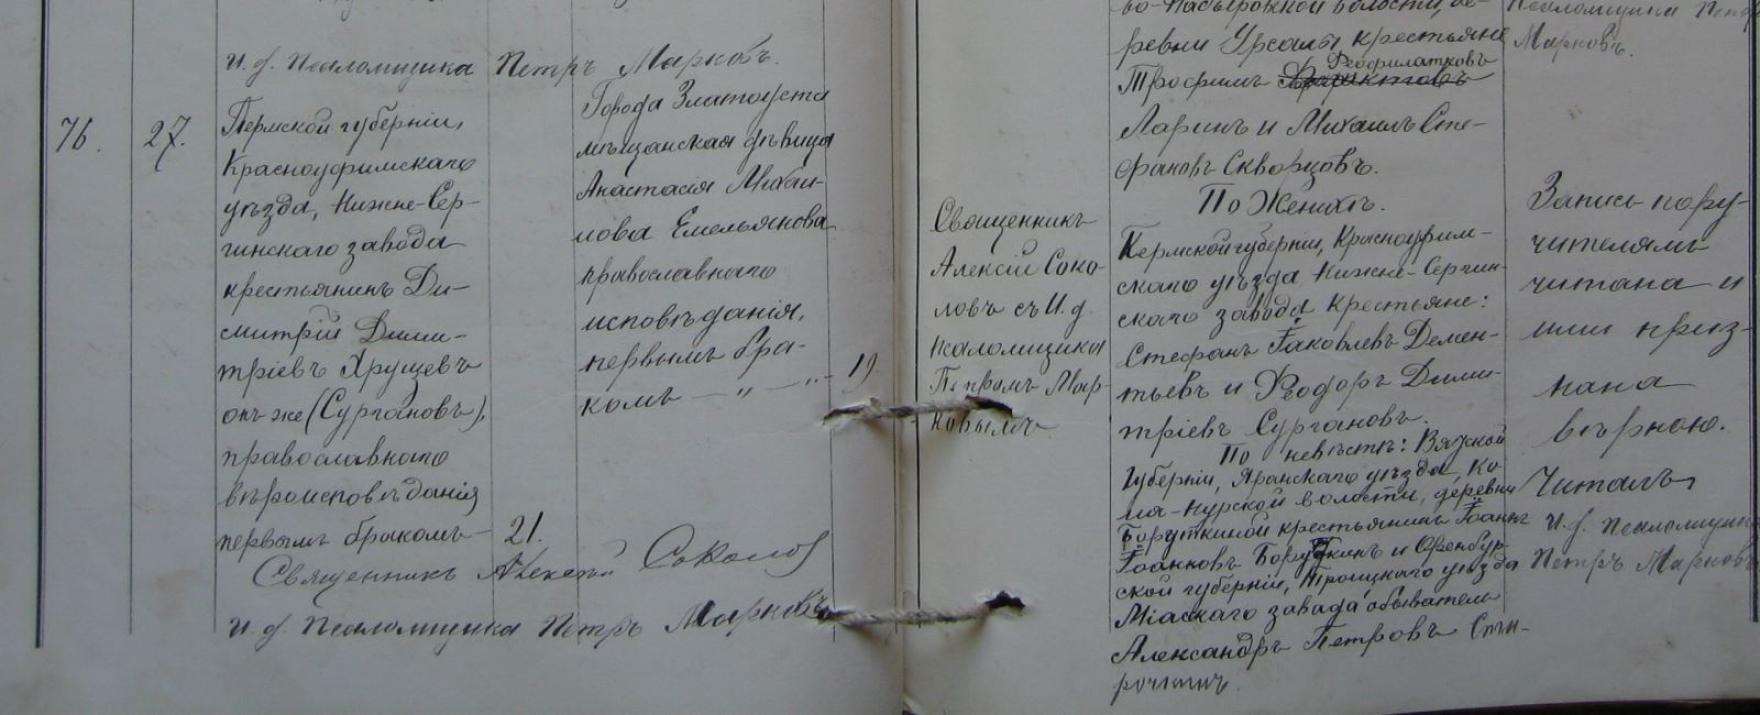 И. д. Псаломщика Петръ Марковъ.
76. 27.
Пермской губерніи,
Красноуфимскаго
уѣзда, Нижне-Сер-
гинскаго завода
крестьянинъ Ди-
митрій Дими-
тріевъ Хрущевъ
онъ же (Сургановъ),
православнаго
вѣроисповѣданія
первымъ бракомъ - 21.
Города Златоуста
мѣщанская дѣвица
Анастасія Михаи-
лова Емельянова
православнаго
исповѣданія,
первымъ бра-
комъ — „ — „ - 19
Священникъ Алексій Соколов
И. д. Псаломщика Петръ Марковъ
Священникъ
Алексій Соко-
ловъ съ И. д.
псаломщика
Петромъ Мар-
ковымъ
волости, де-
ревни Урсалы, крестьяне
Феофилактовъ
Трофимъ
Ларинъ и Михаилъ Сте-
фановъ Скворцовъ.
По Женихѣ.
Пермской губерніи, Красноуфим-
скаго уѣзда Нижне-Сергин-
скаго завода крестьяне:
Стефанъ Іаковлевъ Демен-
тьевъ и Ѳеодоръ Дими-
тріевъ Сургановъ.
По невѣстѣ: Вятской
Губерніи, Яранскаго уѣзда, Ко-
ля-нурской волости, деревни
крестьянинъ Іоаннъ
Іоанновъ и Оренбур-
ской губерніи, Троицкаго уѣзда
Міаскаго завода обыватель
Александръ Петровъ
Псаломщика Петръ
Марковъ.
Запись пору-
чителямъ
читана и
ими приз-
нана
вѣрною.
Читалъ
И. д. Псаломщика
Петръ Марковъ